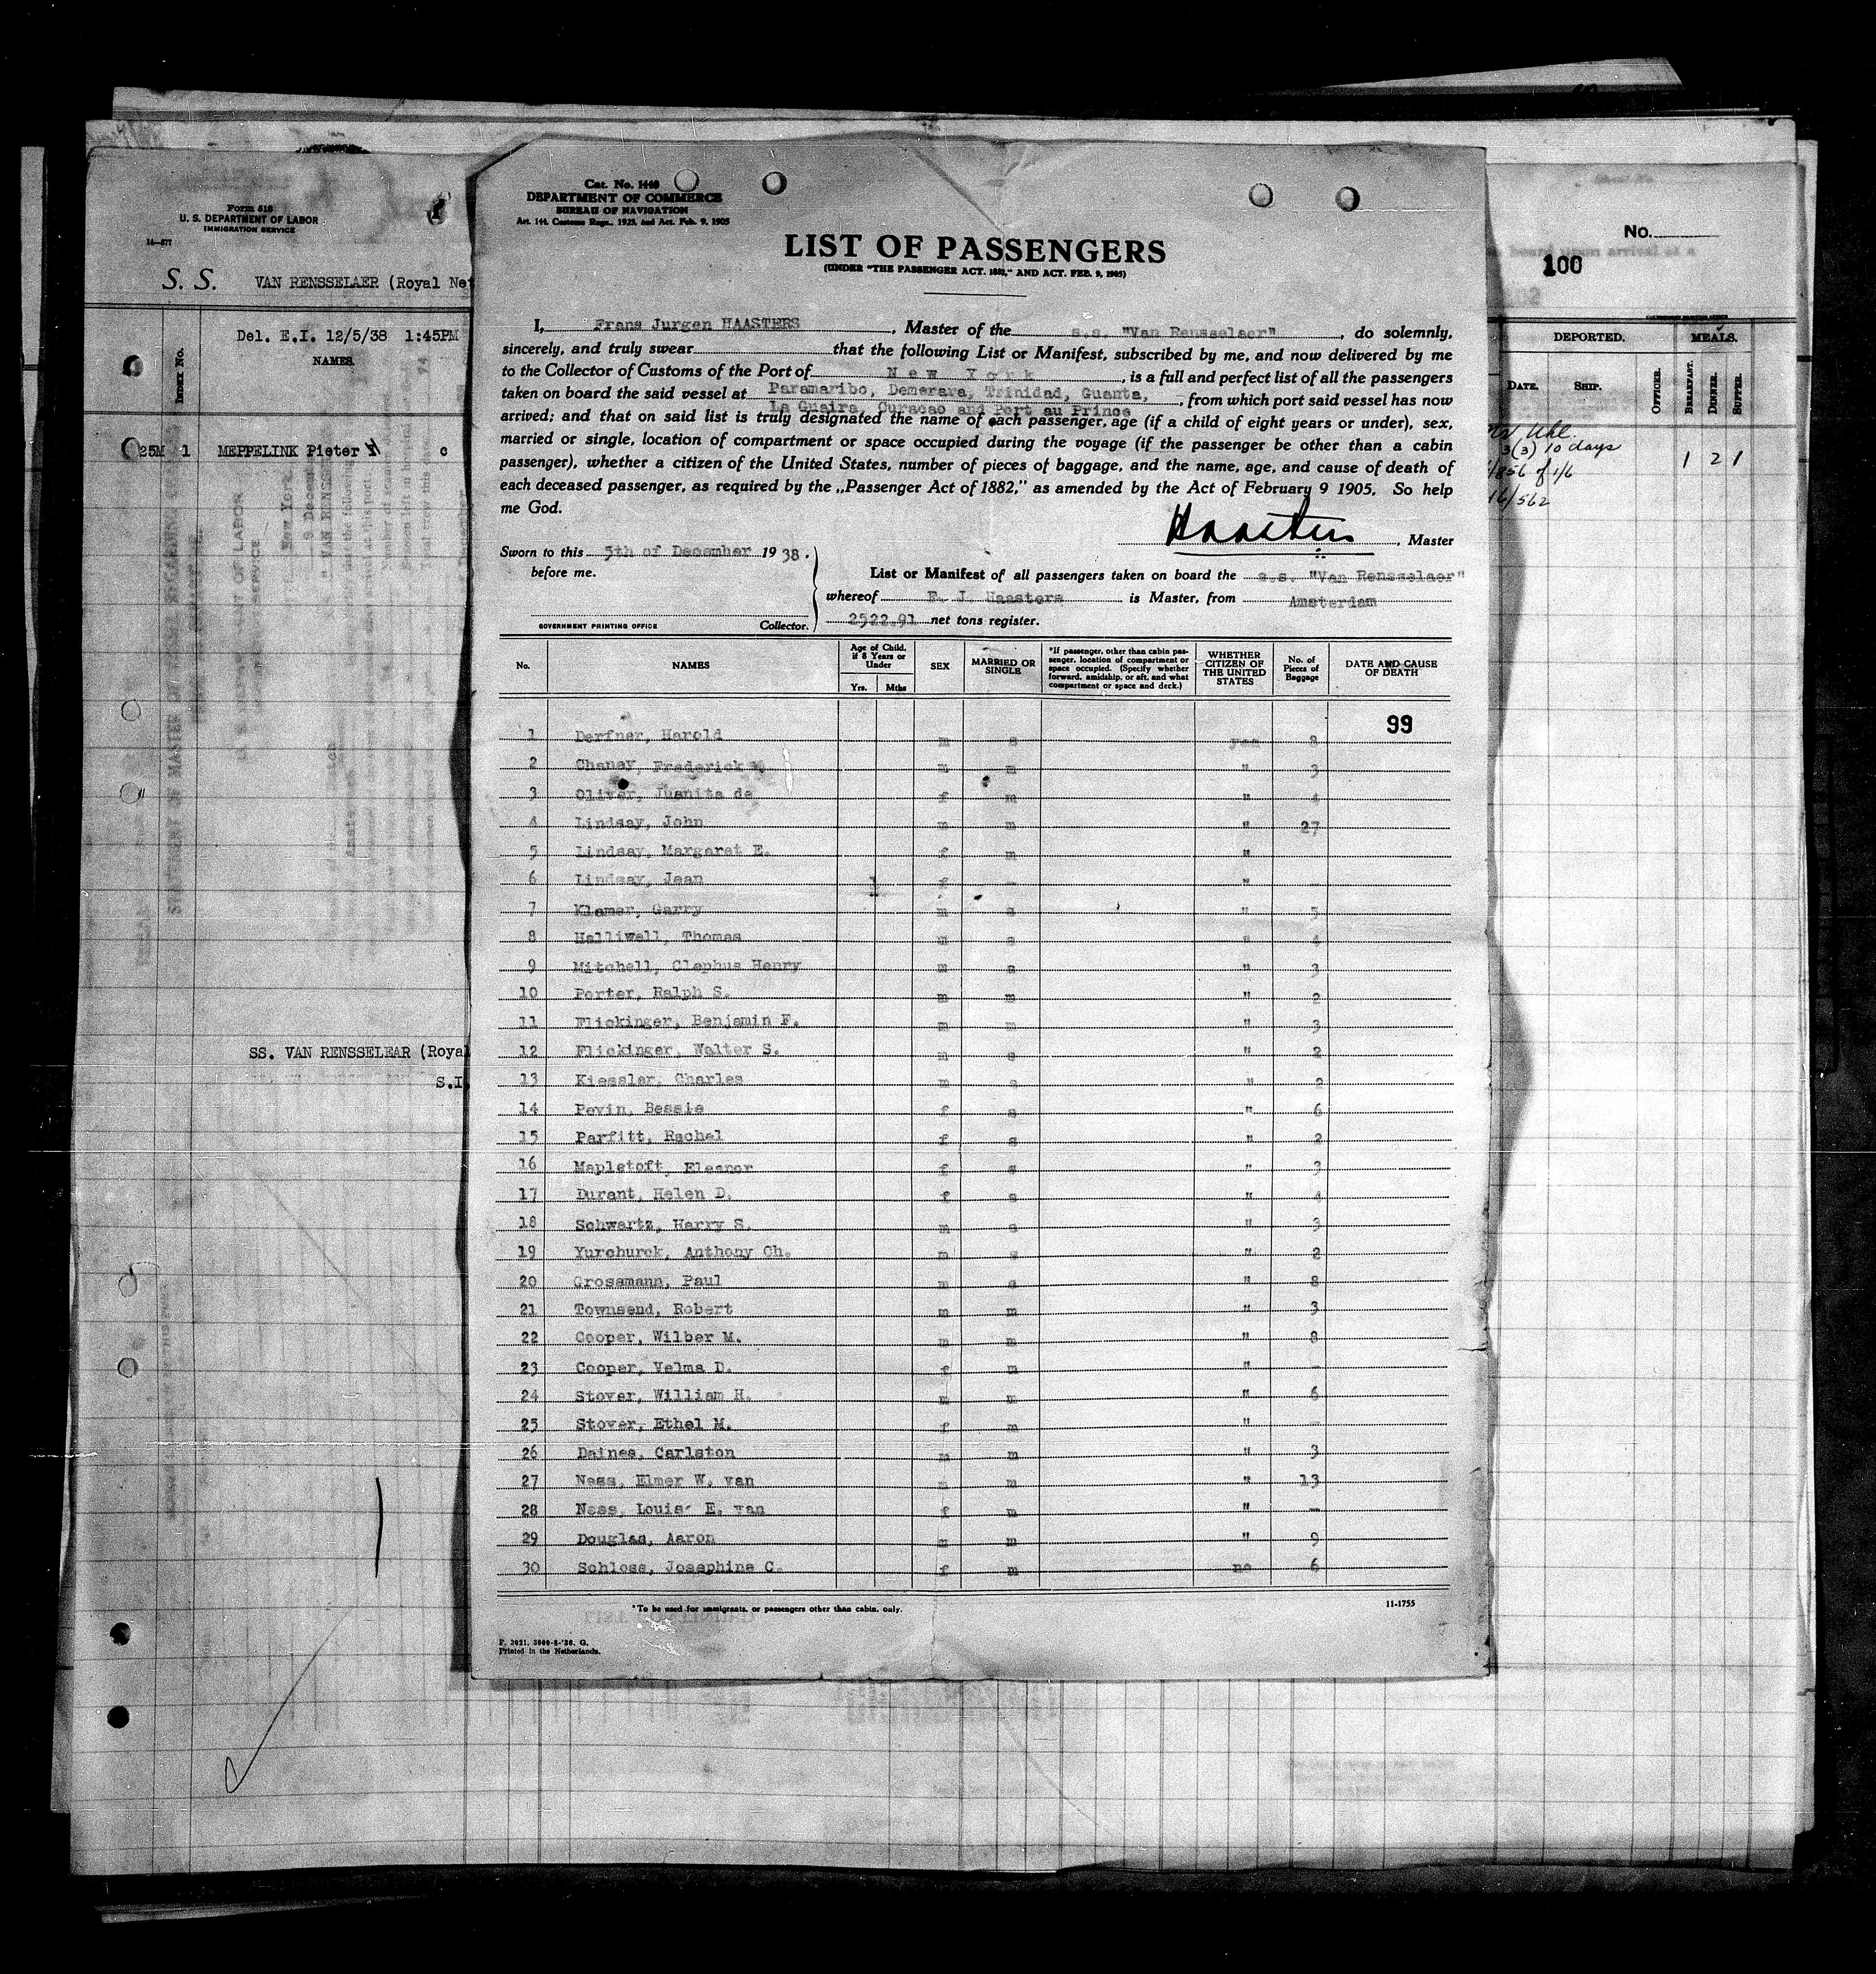 Form 518
U. S. DEPARTMENT OF LABOR
IMMIGRATION SERVICE
14—577
S. S. VAN RENSSELAER (Royal Net
Del. E.I. 12/5/38 1:45PM
INDEX No.
NAMES.
25M 1 MEPPELINK Pieter c
SS. VAN RENSSELEAR (Royal
S.I.
Cat. No. 1440
DEPARTMENT OF COMMERCE
BUREAU OF NAVIGATION
Art. 144, Customs Regs., 1923, and Act. Feb. 9, 1905
LIST OF PASSENGERS
(UNDER "THE PASSENGER ACT. 1882," AND ACT. FEB. 9, 1905)
I, Frans Jurgen HAASTERS, Master of the s.s. "Van Rensselaer", do solemnly,
sincerely, and truly swear that the following List or Manifest, subscribed by me, and now delivered by me
to the Collector of Customs of the Port of New York, is a full and perfect list of all the passengers
taken on board the said vessel at Paramaribo, Demerara, Trinidad, Guanta, from which port said vessel has now
La Guaira, Curacao and Port au Prince
arrived; and that on said list is truly designated the name of each passenger, age (if a child of eight years or under), sex,
married or single, location of compartment or space occupied during the voyage (if the passenger be other than a cabin
passenger), whether a citizen of the United States, number of pieces of baggage, and the name, age, and cause of death of
each deceased passenger, as required by the „Passenger Act of 1882," as amended by the Act of February 9 1905. So help
me God.
Haasters, Master
Sworn to this 5th of December 1938.
before me.
Collector.
GOVERNMENT PRINTING OFFICE
List or Manifest of all passengers taken on board the s.s. "Van Rensselaer"
whereof F. J. Haasters is Master, from Amsterdam
2522.91 net tons register.
No. NAMES Age of Child, if 8 Years or Under Yrs. Mths SEX MARRIED OR SINGLE *If passenger, other than cabin passenger, location of compartment or space occupied. (Specify whether forward, amidship, or aft, and what compartment or space and deck.) WHETHER CITIZEN OF THE UNITED STATES No. of Pieces of Baggage DATE AND CAUSE OF DEATH
99
1 Derfner, Harold m s yes 8
2 Chaney, Frederick m m " 3
3 Oliver, Juanita de f m " 4
4 Lindsay, John m m " 27
5 Lindsay, Margaret E. f m "
6 Lindsay, Jean 1 f — " —
7 Klamer, Garry m s " 5
8 Halliwell, Thomas m s " 4
9 Mitchell, Clephus Henry m s " 3
10 Porter, Ralph S. m m " 2
11 Flickinger, Benjamin F. m m " 3
12 Flickinger, Walter S. m s " 2
13 Kiessler, Charles m s " 2
14 Pevin, Bessie f s " 6
15 Parfitt, Rachel f s " 2
16 Mapletoft, Eleanor f s " 3
17 Durant, Helen D. f s " 4
18 Schwartz, Harry S. m s " 3
19 Yurchurck, Anthony Ch. m s " 2
20 Grossmann, Paul m s " 8
21 Townsend, Robert m m " 3
22 Cooper, Wilber M. m m " 8
23 Cooper, Velma D. f m " —
24 Stover, William H. m m " 6
25 Stover, Ethel M. f m " —
26 Daines, Carlston m m " 3
27 Ness, Elmer W. van m m " 13
28 Ness, Louise E. van f m " —
29 Douglas, Aaron m m " 9
30 Schloss, Josephine C. f m no 6
*To be used for immigrants, or passengers other than cabin, only.
11-1755
F. 3021. 3000-8-'36. G.
Printed in the Netherlands.
No.
100
DEPORTED. MEALS.
DATE. SHIP. OFFICER. BREAKFAST. DINNER. SUPPER.
3(3) 10 days
1 2 1